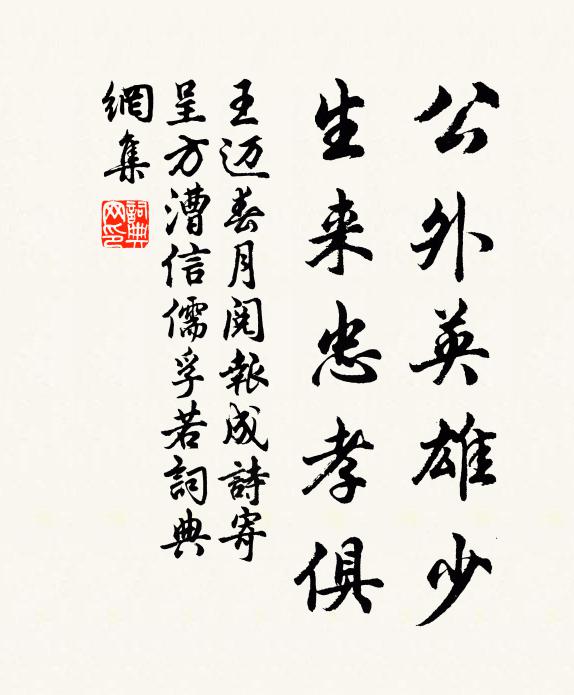 公外英雄少
生来忠孝俱
王迈春月阅報成詩寄
呈方漕信儒孚若詞典
網集
詞典网印